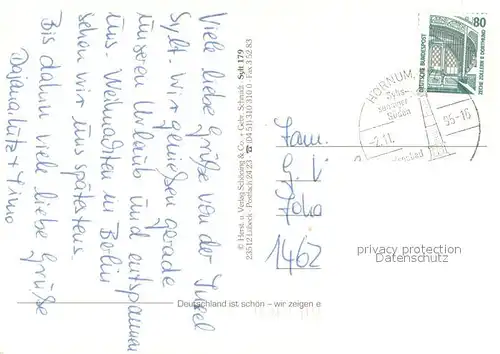 Viele liebe Grüße von der Insel
Sylt. Wir genießen gerade
unseren Urlaub und entspannen
uns. Weihnachten in Berlin
sehen wir uns spätestens.
Bis dahin viele liebe Grüße
Dajana, Lutz + Timo
© Herst. u. Verlag Schöning & Co. + Gebr. Schmidt · Sylt 179
23512 Lübeck · Postfach 24 23 · ☎ (04 51) 310 310 0 · Fax 3 52 83
80
DEUTSCHE BUNDESPOST
ZECHE ZOLLERN II DORTMUND
HÖRNUM,
Sylts
sonniger
Süden
-2.11.
95-16
Fam.
G. V
Joha
1462
privacy protection
Datenschutz
Deutschland ist schön – wir zeigen e